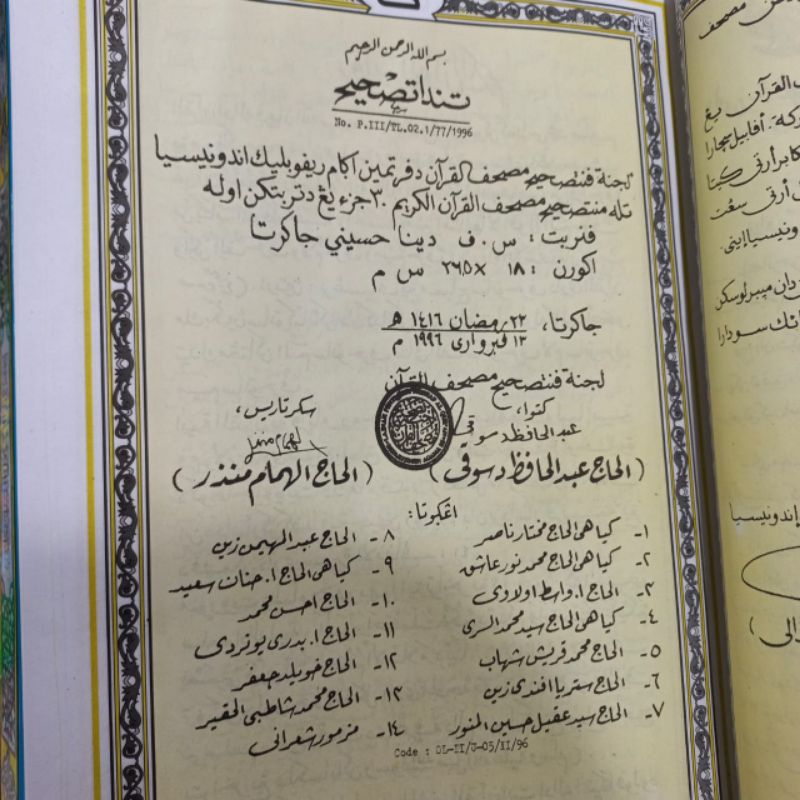 بسم الله الرحمن الرحيم
تندا تصحيح
No. P.III/TL.02.1/77/1996
لجنة فنتصحيح مصحف القرآن دفرتمين اڬام ريفوبليك اندونيسيا
تله منتصحيح مصحف القرآن الكريم ٣٠ جزء يڠ دتربتكن اوله
فنربت : س. ف دينا حسيني جاكرتا
اكورن : ١٨ × ٢٦،٥ س م
جاكرتا، ٢٢ رمضان ١٤١٦ ه
١٣ فبرواري ١٩٩٦ م
لجنة فنتصحيح مصحف القرآن
كتوا،
سكرتاريس،
عبد الحافظ دسوقي
( الحاج عبد الحافظ دسوقي )
( الحاج الهمام منذر )
اڠڬوتا :
١- كياهى الحاج مختار ناصر
٢- كياهى الحاج محمد نور عاشق
٣- الحاج ا. واسط اولاوى
٤- كياهى الحاج سيد محمد السرى
٥- الحاج محمد قريش شهاب
٦- الحاج ستريا افندى زين
٧- الحاج سيد عقيل حسين المنور
٨- الحاج عبد المهيمن زين
٩- كياهى الحاج ا. حنان سعيد
١٠- الحاج احسن محمد
١١- الحاج ا. بدرى يونردى
١٢- الحاج خويلد جعفر
١٣- الحاج محمد شاطبى الحقير
١٤- مزمور شعرانى
Code : OL-II/J-05/II/96